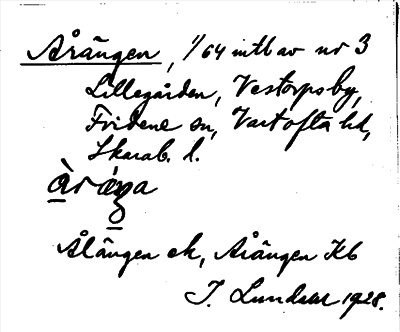 Åräng̲en, 1/64 mtl av nr 3
Lillegården, Vestorps by,
Fridene sn, Vartofta hd,
Skarab. l.
àráŋa
Ålängen ek, Arängen Kb
I. Lundahl 1928.